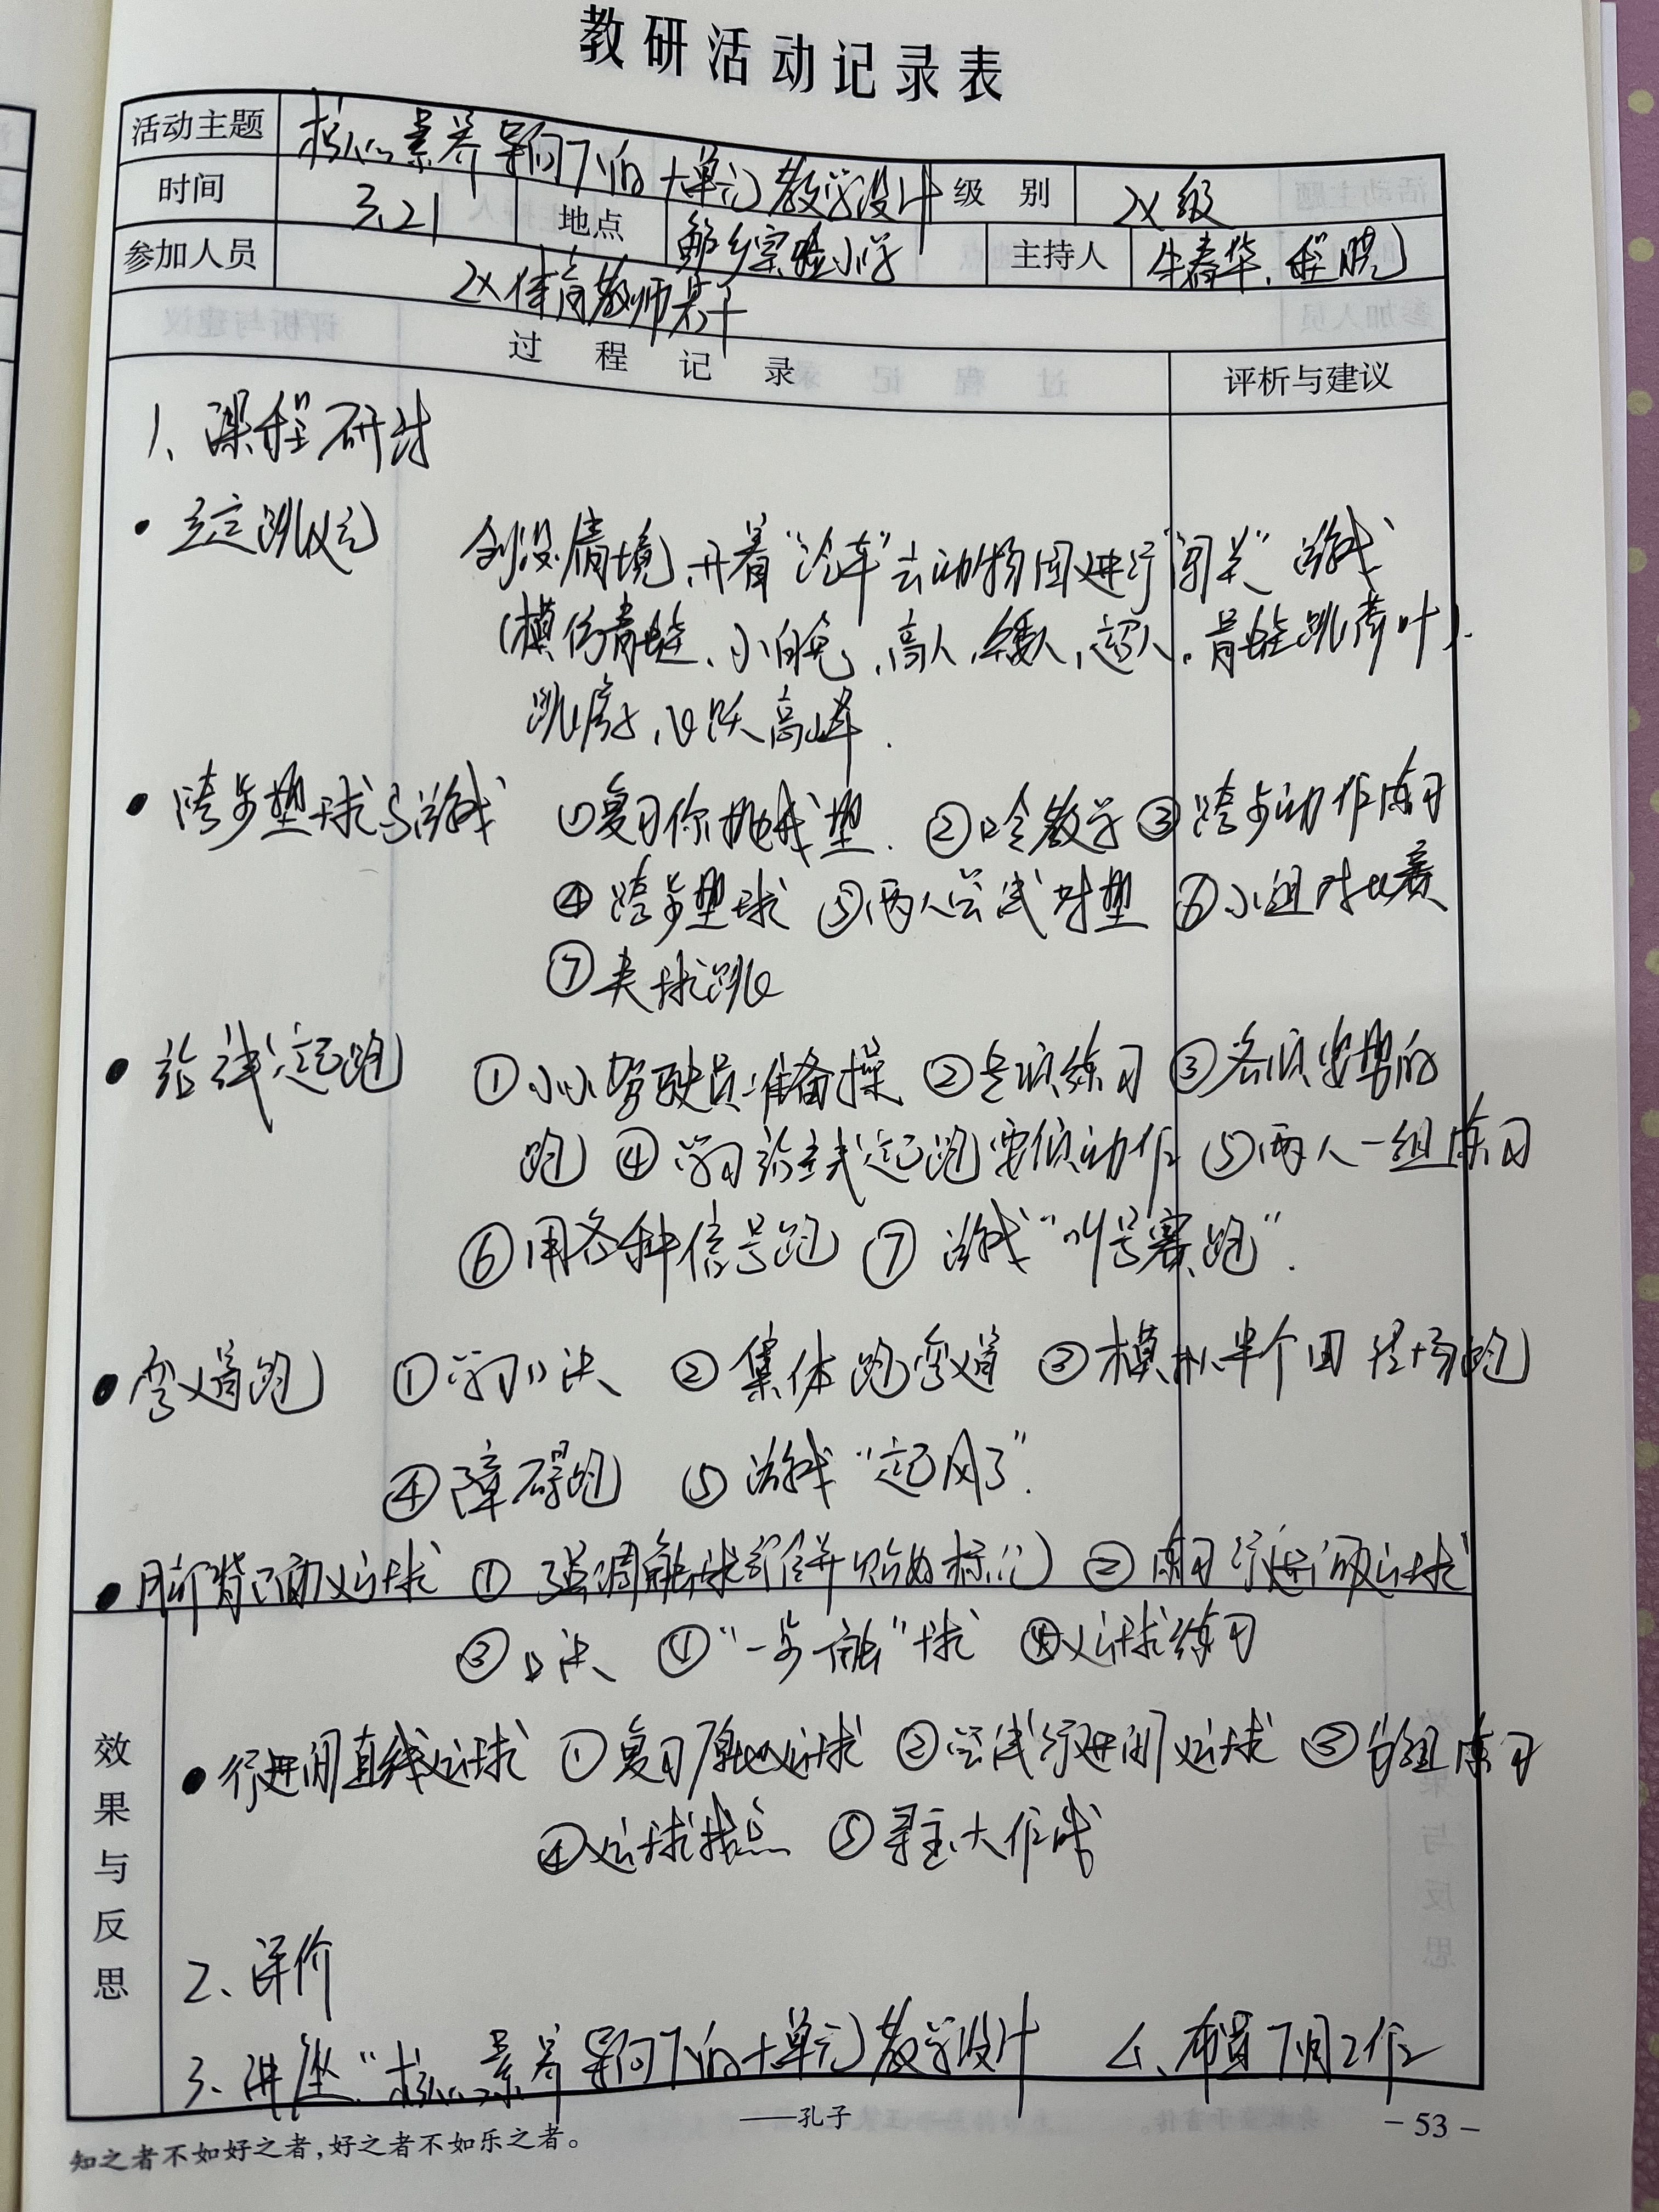 教研活动记录表
活动主题 核心素养导向下的大单元教学设计
时间 3.21 地点 鲍乡实验小学 级别 区级
参加人员 区体育教师骨干 主持人 牛春华、程晓
过程记录 评析与建议
1、课程研讨
• 立定跳远 创设情境,开着“汽车”去动物园进行“闯关”游戏
(模仿青蛙、小白兔、高人、矮人、超人、青蛙跳荷叶).
跳房子、飞跃高峰.
• 跨步垫球与游戏 ①复习你抛我垫. ②口令教学 ③跨步动作练习
④跨步垫球 ⑤两人尝试对垫 ⑥小组对比赛
⑦夹球跳
• 站式起跑 ①小小驾驶员准备操 ②专项练习 ③各项姿势的
跑 ④学习站立式起跑要领动作 ⑤两人一组练习
⑥用各种信号跑 ⑦游戏“叫号赛跑”.
• 弯道跑 ①学习口诀 ②集体跑弯道 ③模拟半个田径场跑
④障碍跑 ⑤游戏“起风了”.
• 脚背正面运球 ①强调触球部位并贴好标记 ②练习行进间运球
③口诀 ④“一步一触”球 ⑤运球练习
• 行进间直线运球 ①复习原地运球 ②尝试行进间运球 ③分组练习
④运球接力 ⑤寻宝大作战
效果与反思
2、评价
3、讲座“核心素养导向下的大单元教学设计 4、布置下月工作
——孔子
知之者不如好之者,好之者不如乐之者。
– 53 –